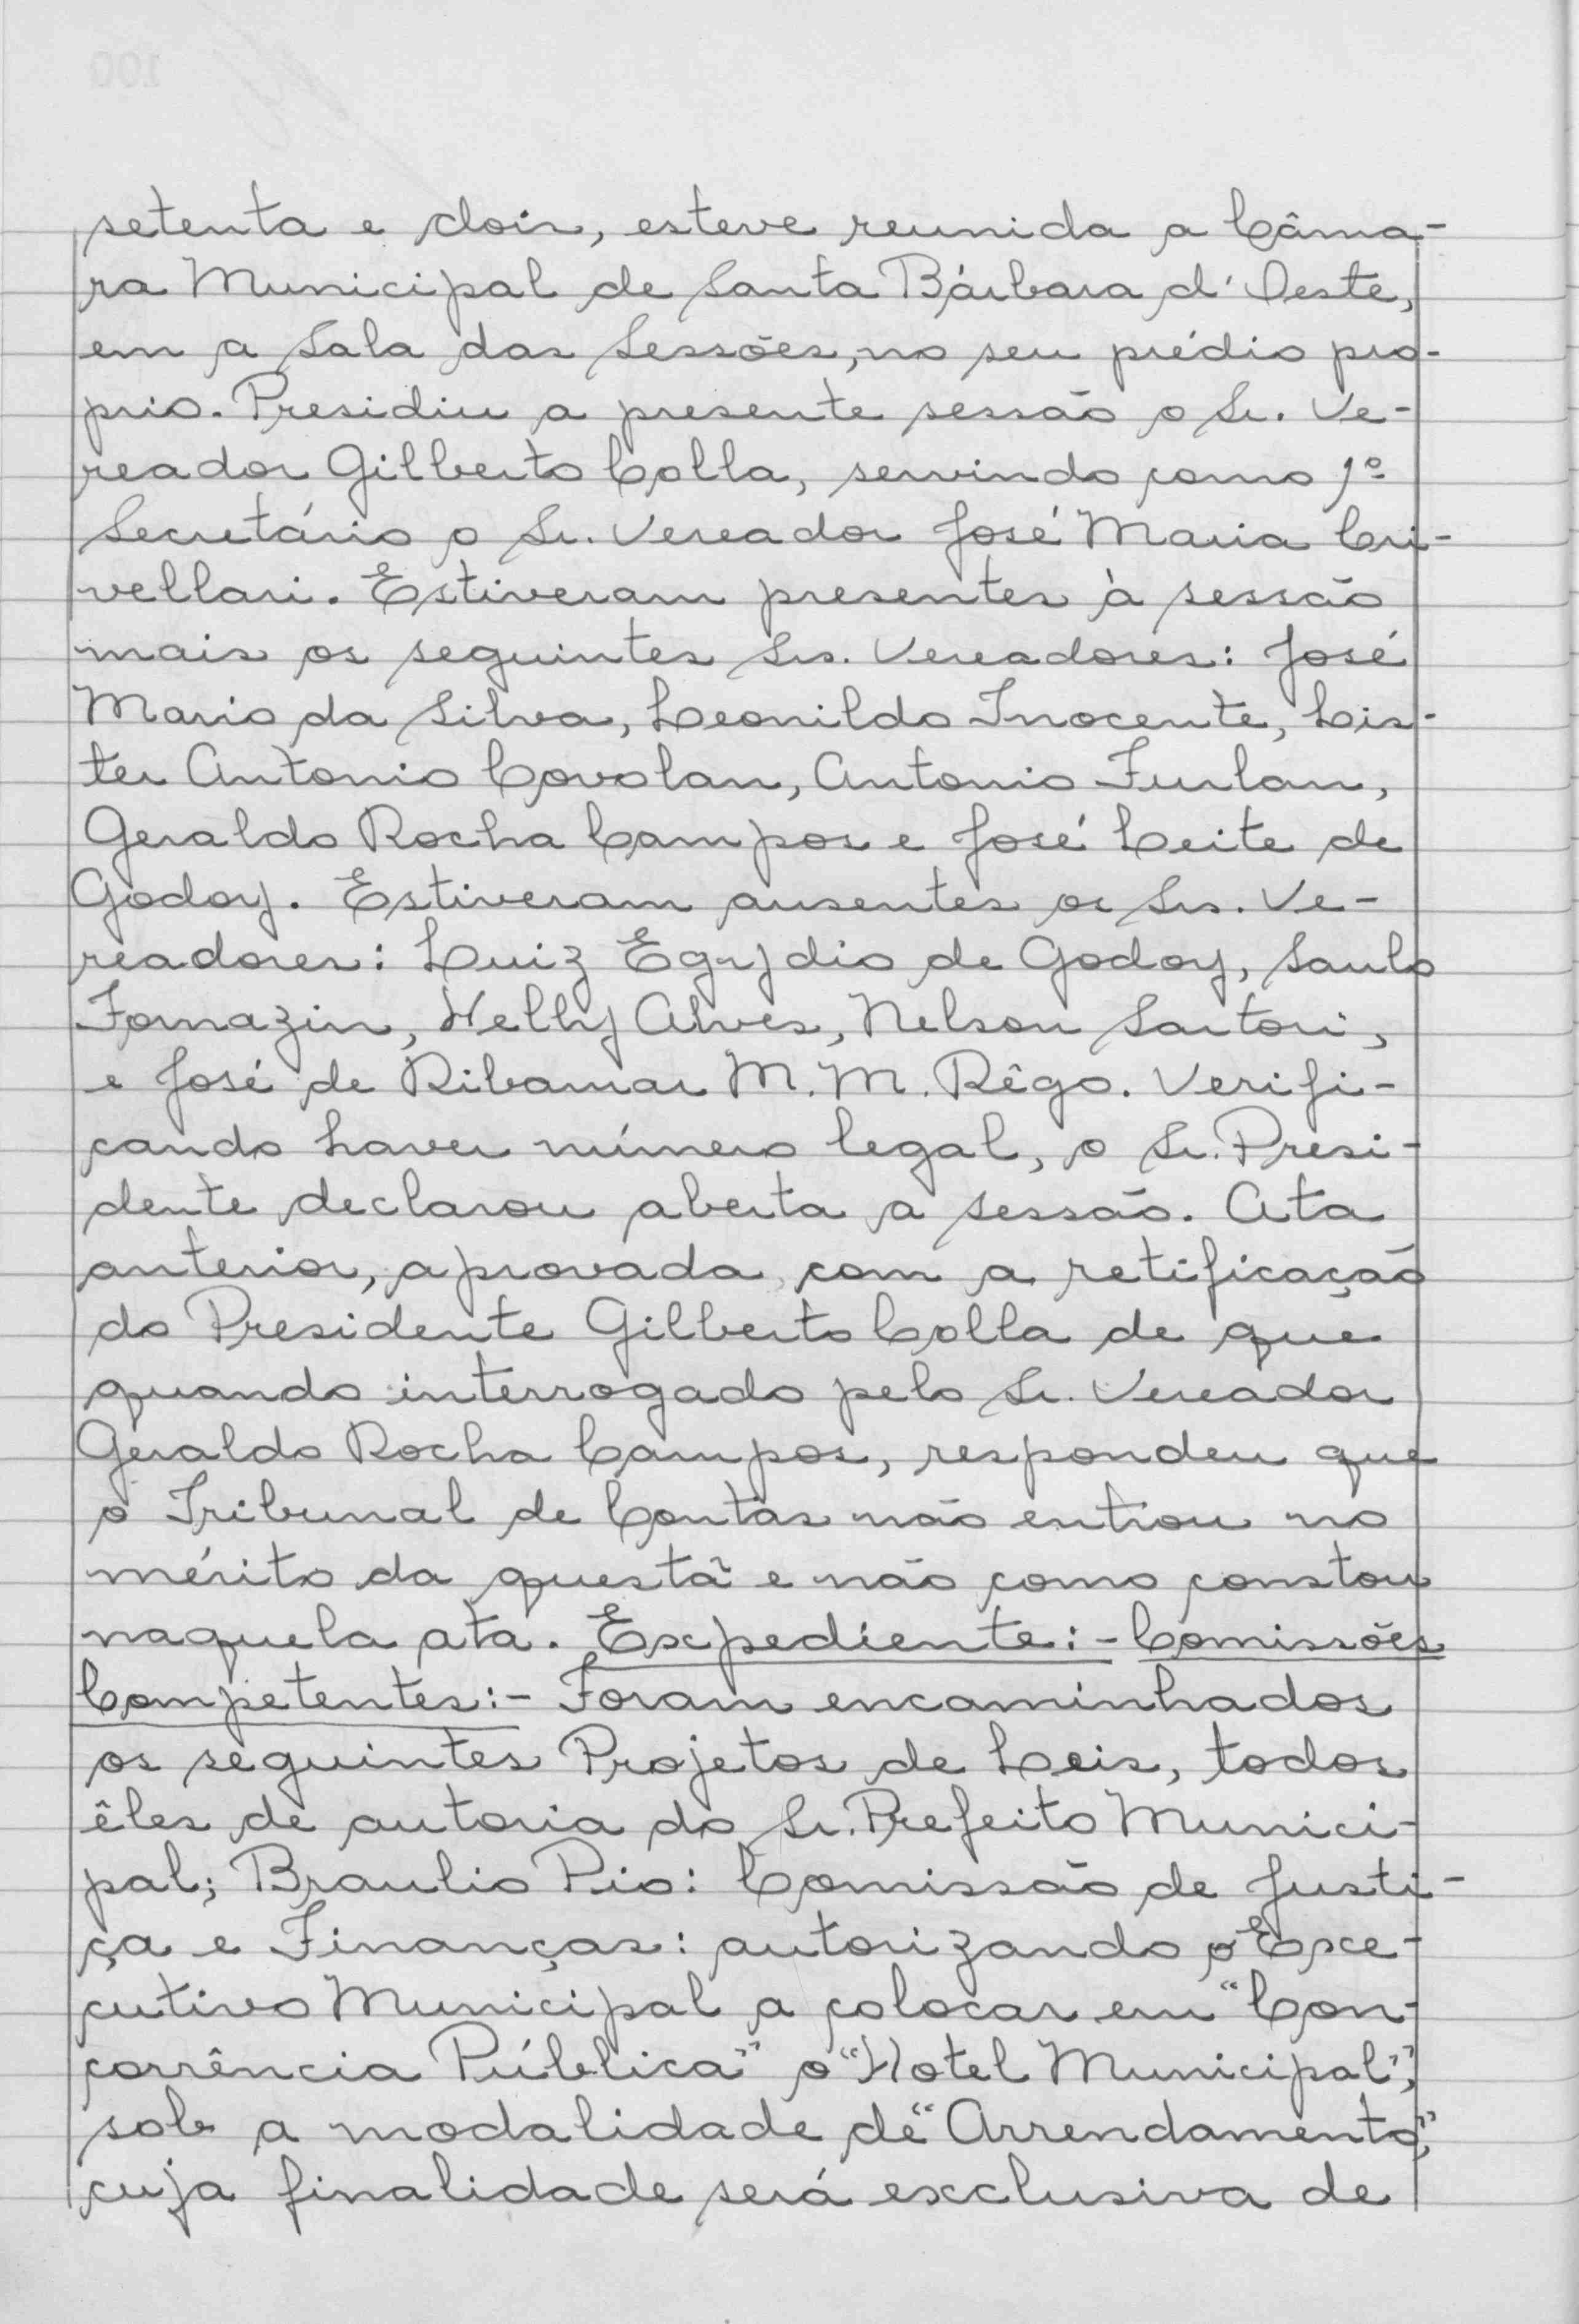 setenta e dois, esteve reunida a Câma-
ra Municipal de Santa Bárbara d'Oeste,
em a Sala das Sessões, no seu prédio pro-
prio. Presidiu a presente sessão o Sr. Ve-
reador Gilberto Colla, servindo como 1º
Secretário o Sr. Vereador José Maria Cri-
vellari. Estiveram presentes à sessão
mais os seguintes Srs. Vereadores: José
Mario da Silva, Leonildo Inocente, Lis-
ter Antonio Covolan, Antonio Furlan,
Geraldo Rocha Campos e José Leite de
Godoy. Estiveram ausentes os Srs. Ve-
readores: Luiz Egydio de Godoy, Saulo
Fornazin, Welly Alves, Nelson Sartori,
e José de Ribamar M. M. Rêgo. Verifi-
cando haver número legal, o Sr. Presi-
dente declarou aberta a sessão. Ata
anterior, aprovada com a retificação
do Presidente Gilberto Colla de que
quando interrogado pelo Sr. Vereador
Geraldo Rocha Campos, respondeu que
o Tribunal de Contas não entrou no
mérito da questã e não como constou
naquela ata. Expediente:- Comissões
Competentes:- Foram encaminhados
os seguintes Projetos de Leis, todos
êles de autoria do Sr. Prefeito Munici-
pal; Braulio Pio: Comissão de Justi-
ça e Finanças: autorizando o Exe-
cutivo Municipal a colocar em "Con-
corrência Pública" o "Hotel Municipal",
sob a modalidade de "Arrendamento",
cuja finalidade será exclusiva de